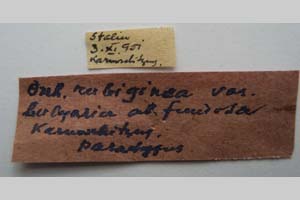 Stalin
3. XI. 951
Karnoschitzky.
Ont. rubiginea var.
bulgaria ab. fumosa
Karnoschitzky.
Paratypus